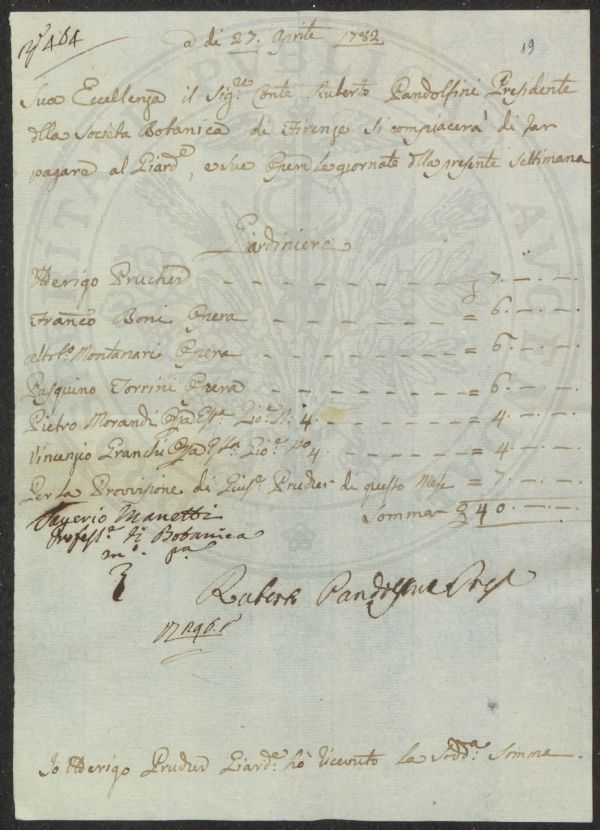 N.º 464
a dì 27. Aprile 1782
19
Sua Eccellenza il Sig.re Conte Ruberto Pandolfini Presidente
della Società Botanica di Firenze si compiacerà di far
pagare al Giard.e, e sue Opere le giornate della presente Settimana
Giardiniere
Aderigo Prucher = 7. — . —
Franco Boni Opera = 6. — . —
Montanari Opera = 6. — . —
Pasquino Torrini Opera = 6. — . —
Pietro Morandi Gio.e N. 4 = 4. — . —
Vincenzio Granchi Gio.e No 4 = 4. — . —
Per la Provisione di Gius.e Prucher di questo Mese = 7. — . —
Somma 40. — . —
Saverio Manetti
Profess.e di Botanica
m.o p.a
Ruberto Pandolfini
Io Aderigo Prucher Giard.e hò ricevuto la Sudd.a Somma.
PUBLICO